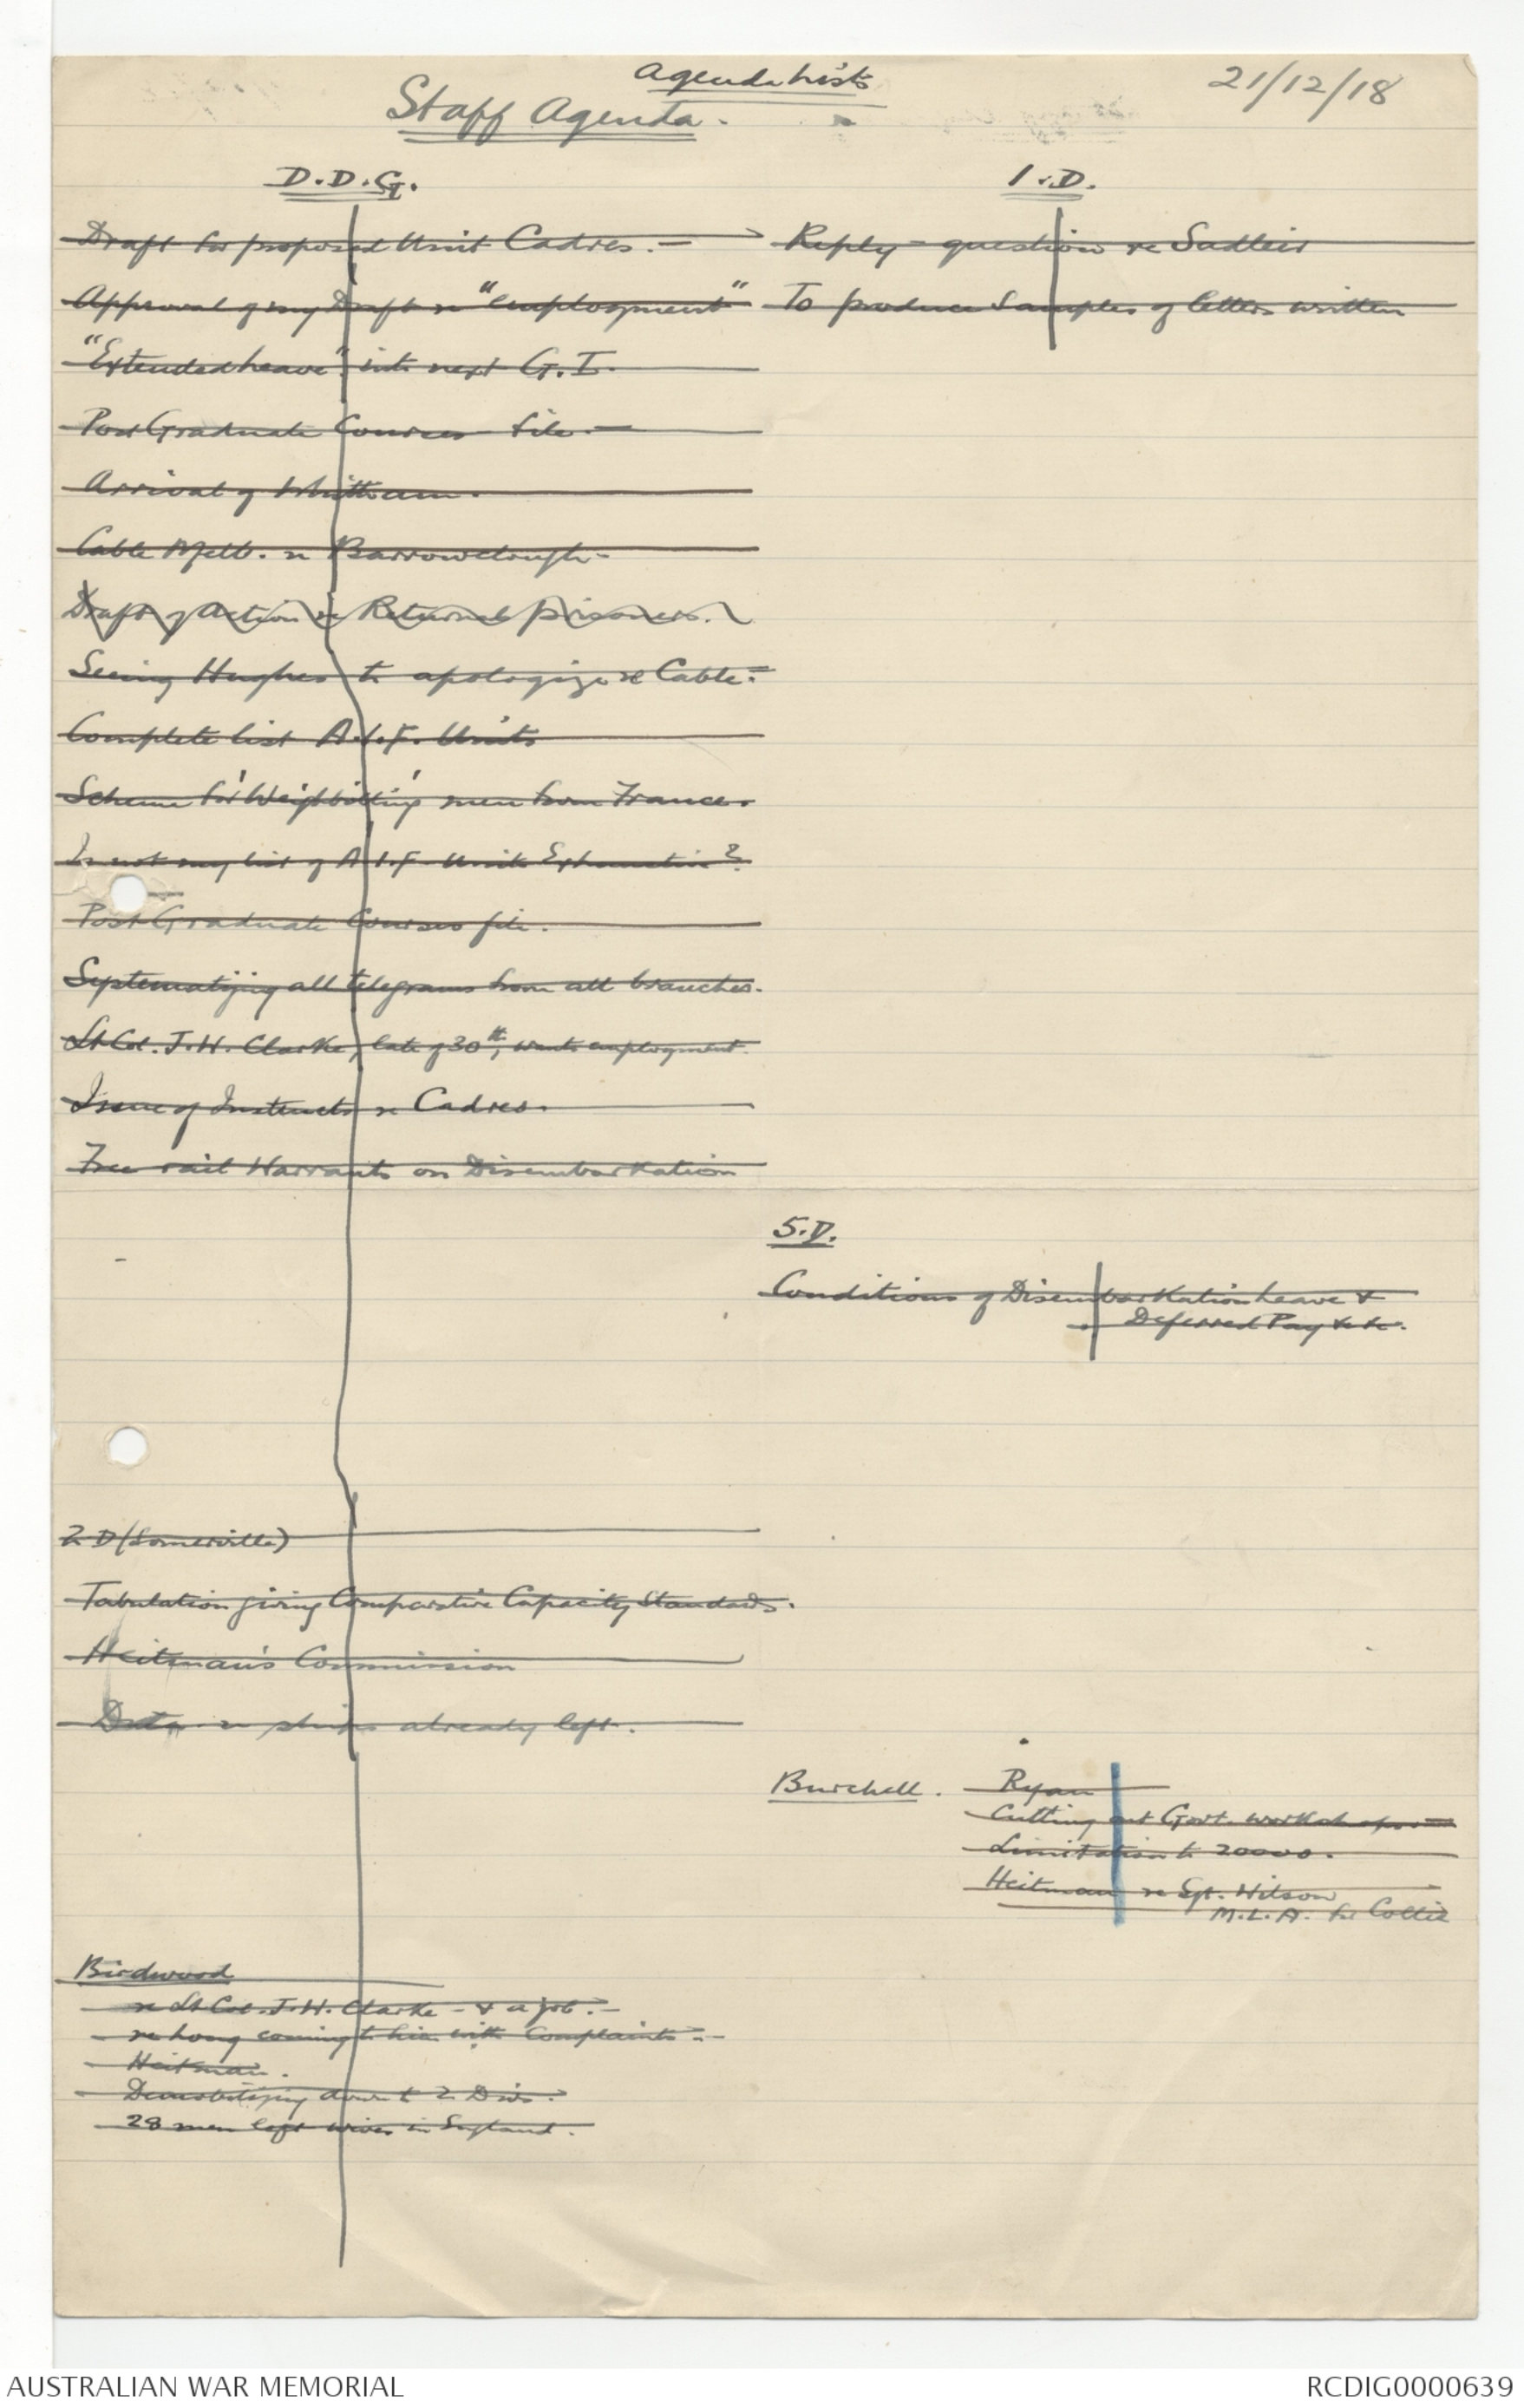 Agenda Lists
Staff Agenda.
21/12/18
D.D.G.
Draft for proposed Unit Cadres. -
Approval of my Draft re "Employment"
"Extended Leave" into next G.I.
Post Graduate Courses file. -
Arrival of Whittham.
Cable Melb. re Barrowclough -
Draft of Action re Returned prisoners.
Seeing Hughes to apologize re Cable. -
Complete list A.I.F. Units
Scheme for 'Weighbilling' men from France.
Is not my list of A.I.F. Units Exhaustive?
Post Graduate Courses file.
Systematizing all telegrams from all branches.
Lt Col. J.H. Clarke, late of 30th, wants employment.
Issue of Instructs re Cadres.
Free rail Warrants on Disembarkation
2 D (Somerville)
Tabulation giving Comparative Capacity Standards.
Heitman's Commission
Data re ships already left.
Birdwood
re Lt Col. J.H. Clarke - & a job. -
re Long coming to him with Complaints. -
Heitman.
Demobilizing down to 2 Divs.
28 men left wives in England.
1.D.
Reply - question re Sadleir
To produce Samples of letters written
5.D.
Conditions of Disembarkation Leave &
Deferred Pay &c &c.
Burchell. Ryan
Cutting out Govt. workshops
Limitation to 20000.
Heitman re Sgt. Wilson
M.L.A. for Collie
AUSTRALIAN WAR MEMORIAL
RCDIG0000639